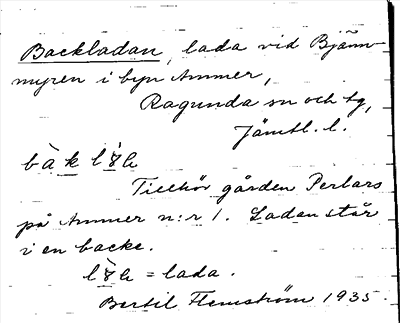 Backladan, lada vid Bjänn-
myren i byn Ammer,
Ragunda sn och tg,
Jämtl. l.
Tillhör gården Perlars
på Ammer n:r 1. Ladan står
i en backe.
= lada.
Bertil Flemström 1935.